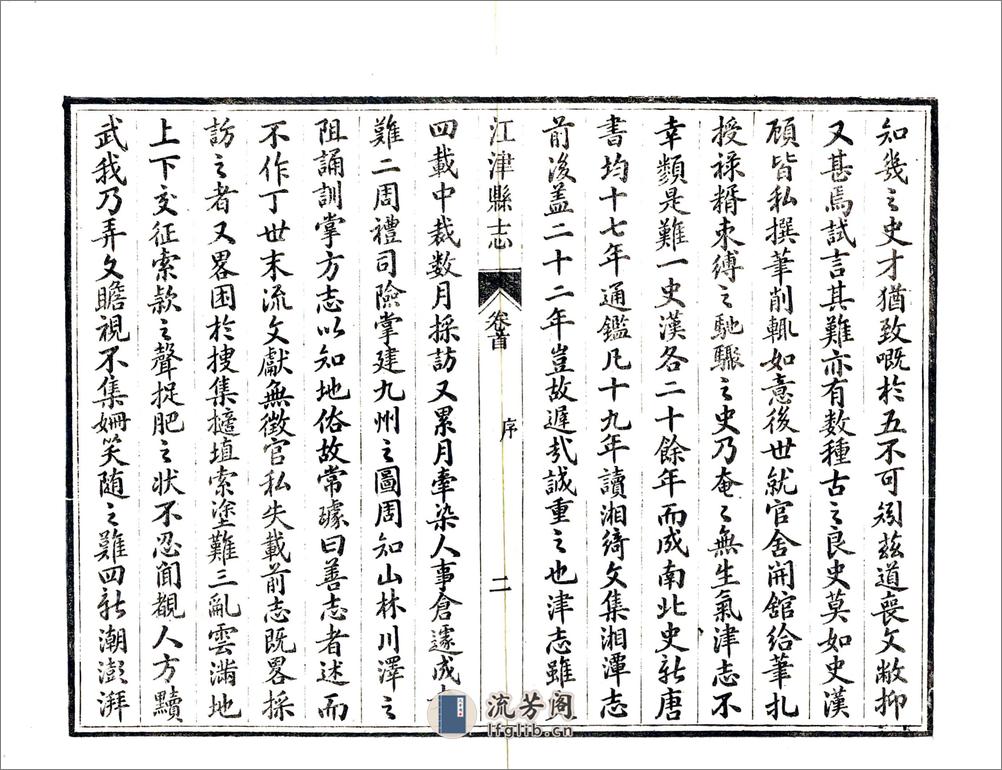 知幾之史才猶致嘅於五不可矧茲道喪文敝抑
又甚焉試言其難亦有数種古之良史莫如史漢
頋皆私撰筆削輒如意後世就官舍開舘給筆札
授禄糈束縛之馳驟之史乃奄〻無生氣津志不
幸類是難一史漢各二十餘年而成南北史新唐
書均十七年通鑑凡十九年讀湘綺文集湘潭志
前後盖二十二年豈故遲㢤誠重之也津志雖
江津縣志
卷首
序
二
四載中裁数月採訪又累月牽染人事倉遽成
難二周禮司險掌建九州之圖周知山林川澤之
阻誦訓掌方志以知地俗故常璩曰善志者述而
不作丁世末流文獻無徵官私失載前志既畧採
訪之者又畧困於搜集擿埴索塗難三亂雲滿地
上下交征索款之聲捉肥之状不忍闻覩人方黷
武我乃弄文瞻視不集姍笑随之難四新潮澎湃
流芳阁
lfglib.cn